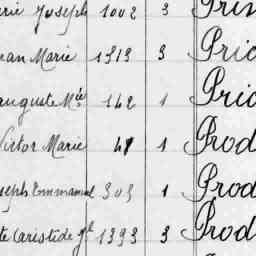 erie Joseph 1002 3 Pris
ean Marie 1313 3 Prio
auguste Mie 142 1 Prio
Victor Marie 41 1 Prod
seph Emmanuel 303 1 Prod
te Caristide Jl 1393 3 Prod